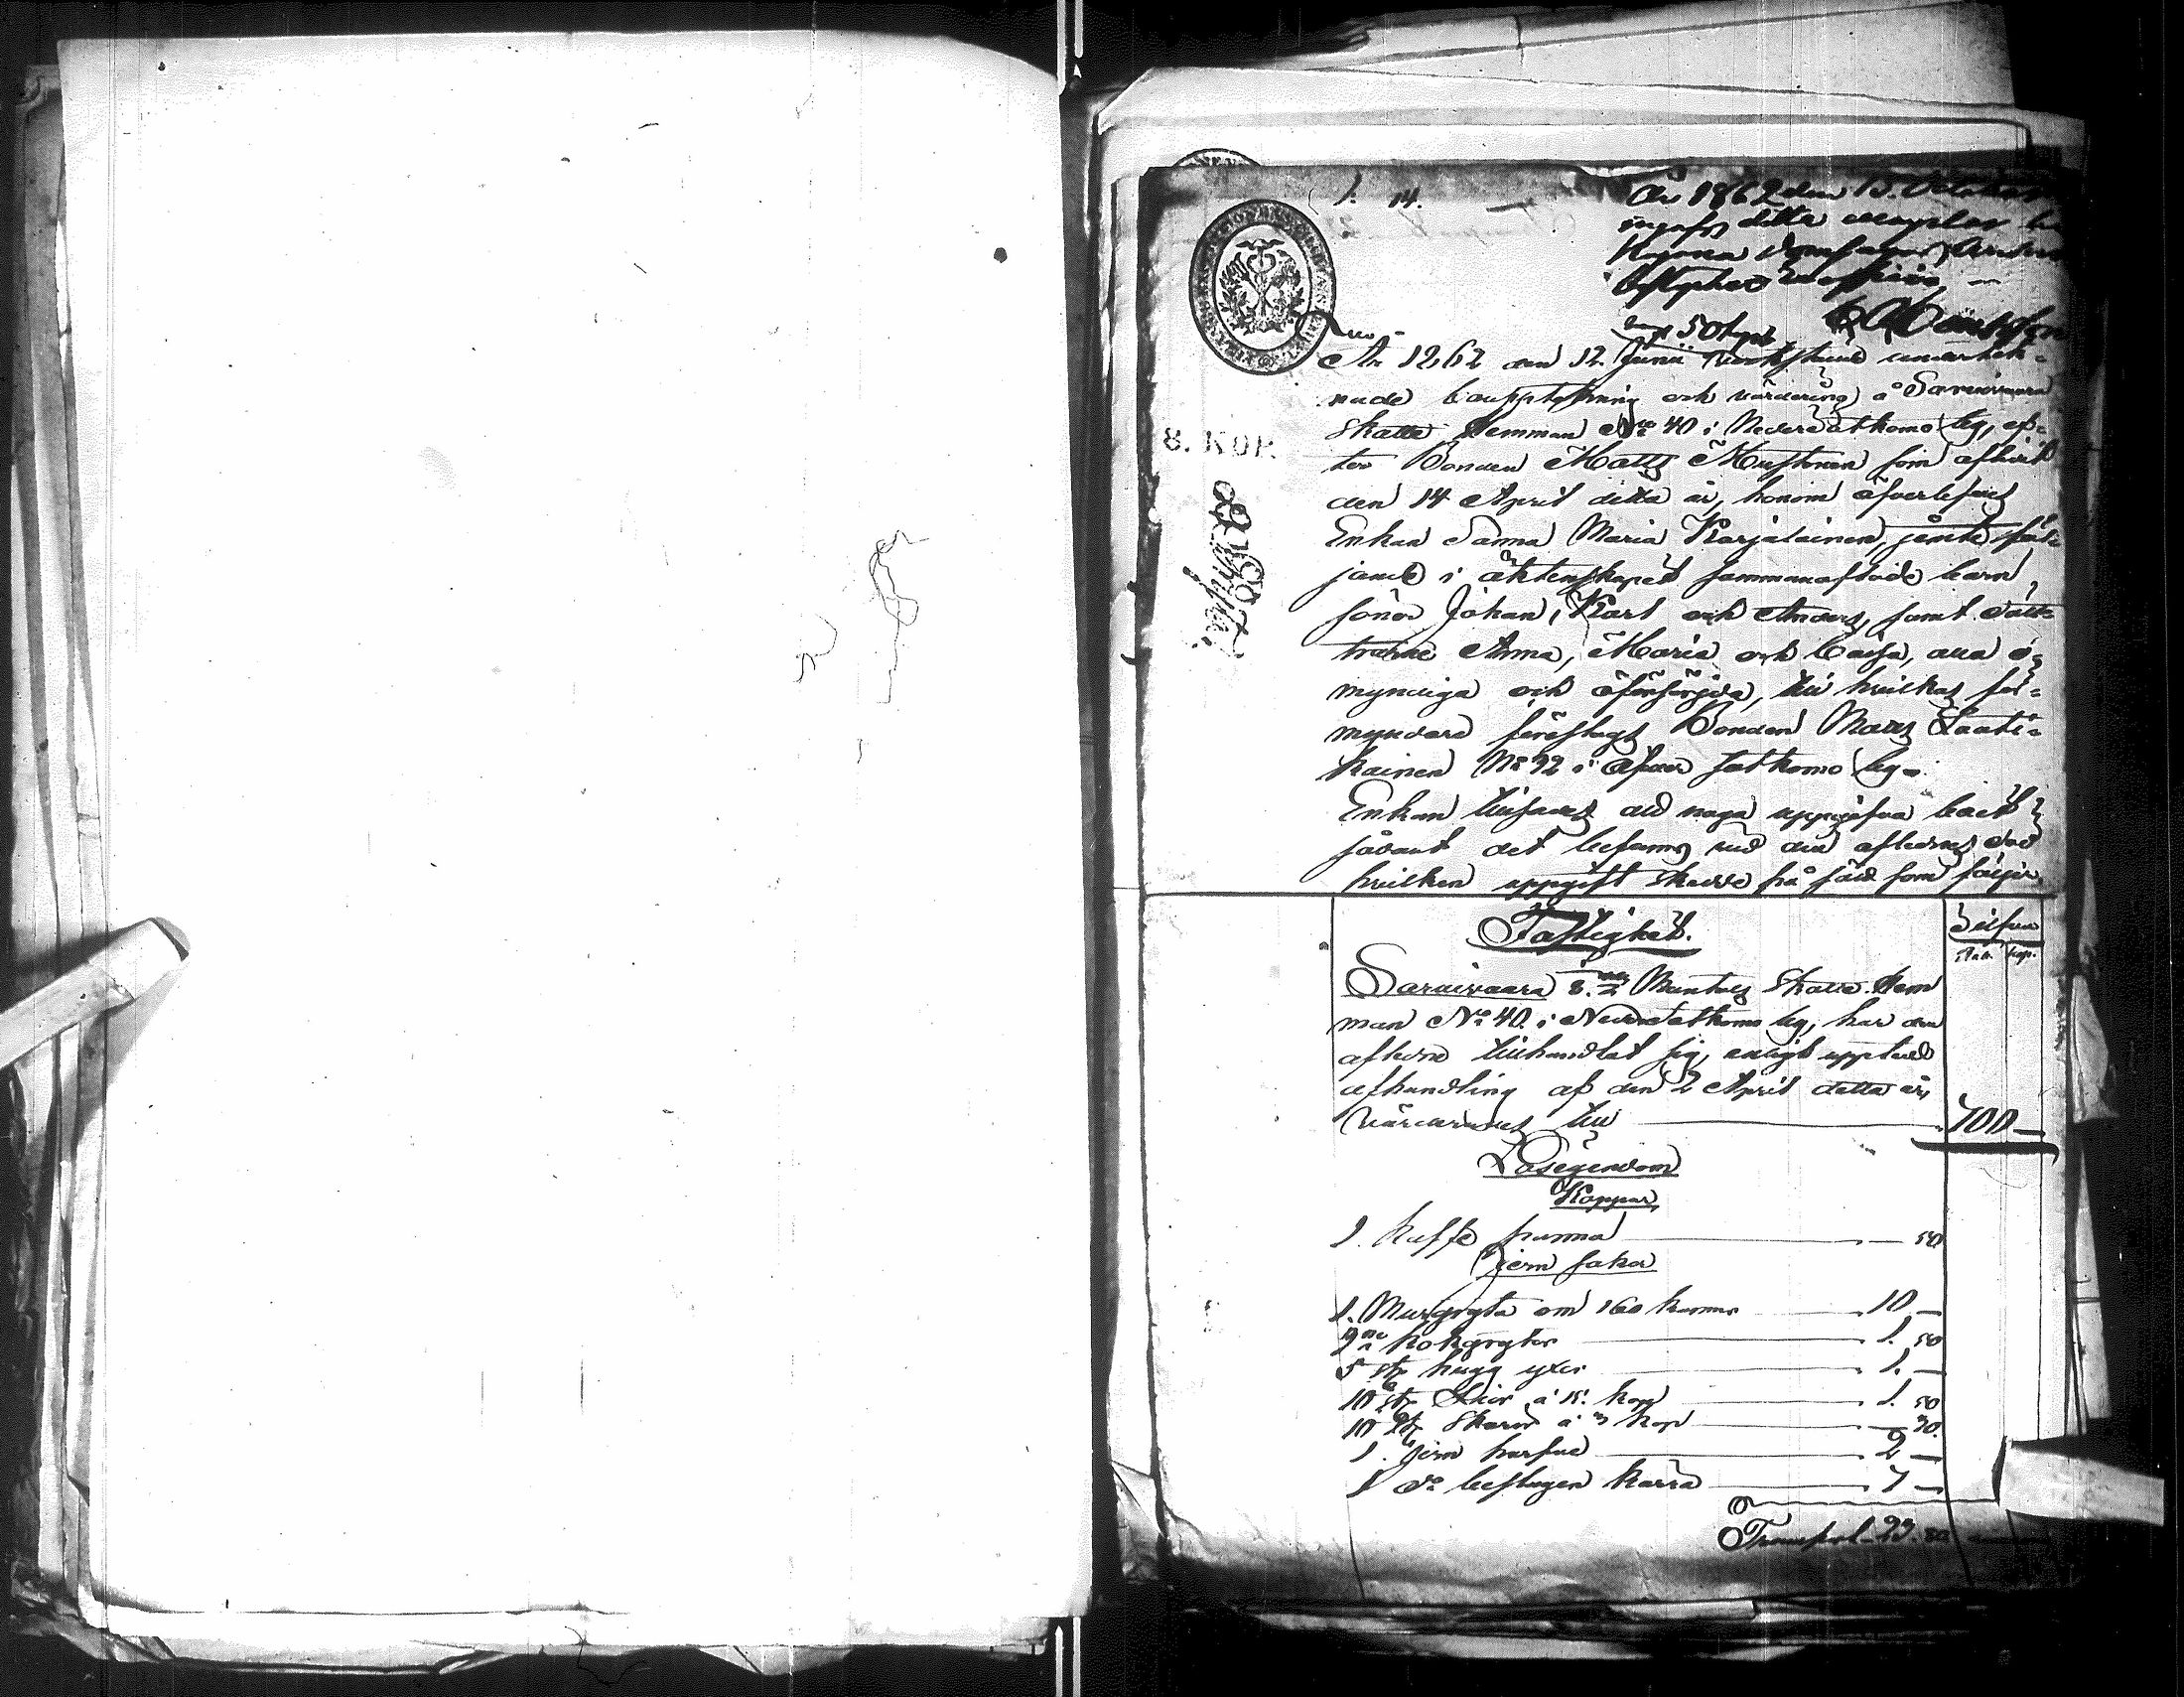 1. 14.
År 1862 den 13. October
ingafs detta exemplar
Kajana
50 kop
8. KOP.
År 1862 den 12. Junii verkstäld undertek-
nade bouppteckning och värdering å Sarvivaara
Skatte Hemman No 40 i Nedre Jatkomo by, ef-
ter Bonden Matts Mustonen som aflidit
den 14 April detta år, honom öfverlefves
Enkan Sanna Maria Karjalainen, jämte föl-
jande i äktenskapet sammanaflade barn,
söner Johan, Karl och Anders, samt dött-
trarne Anna, Maria och Caisa, alla o-
myndiga och oförsörjda, till hvilkas för-
myndare föreslags Bonden Matts Laati-
kainen No 92 i Öfver Jatkomo by.
Enkan tillsades att noga uppgifva boet
sådant det befanns vid den aflednes död
hvilken uppgift skedde på sätt som följer
Fastighet.
Silfver
Rub. Kop.
Sarvivaara Mantals Skatte Hem
man No 40. i Nedre Jatkomo by, har den
aflidne tillhandlat sig, enligt upptedd
afhandling af den 2 April detta år,
värderades till 700 —
Lösegendom
Koppar
1. Kaffe panna — 50
Jern saker
1. Murgryta om 160 kannor 10 —
kokgrytor 1. 50
5 st. hugg yxor 1. —
10 st. Liar à 15. kop 1. 50
10 st. Skäror à 3 kop — 30.
1. Jern harfva 2 —
1 do beslagen kärra 7 —
Transport 23. 80